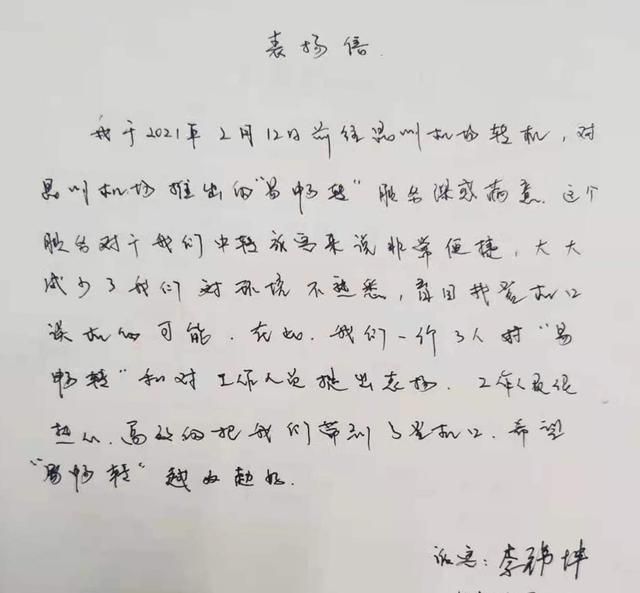 表扬信
我于2021年2月12日前往昆明机场转机，对
昆明机场推出的“易畅转”服务深感满意。这个
服务对于我们中转旅客来说非常便捷，大大
减少了我们对环境不熟悉，盲目找登机口
误机的可能。在此，我们一行3人对“易
畅转”和对工作人员提出表扬。工作人员很
热心、高效的把我们带到了登机口。希望
“易畅转”越办越好。
旅客：李